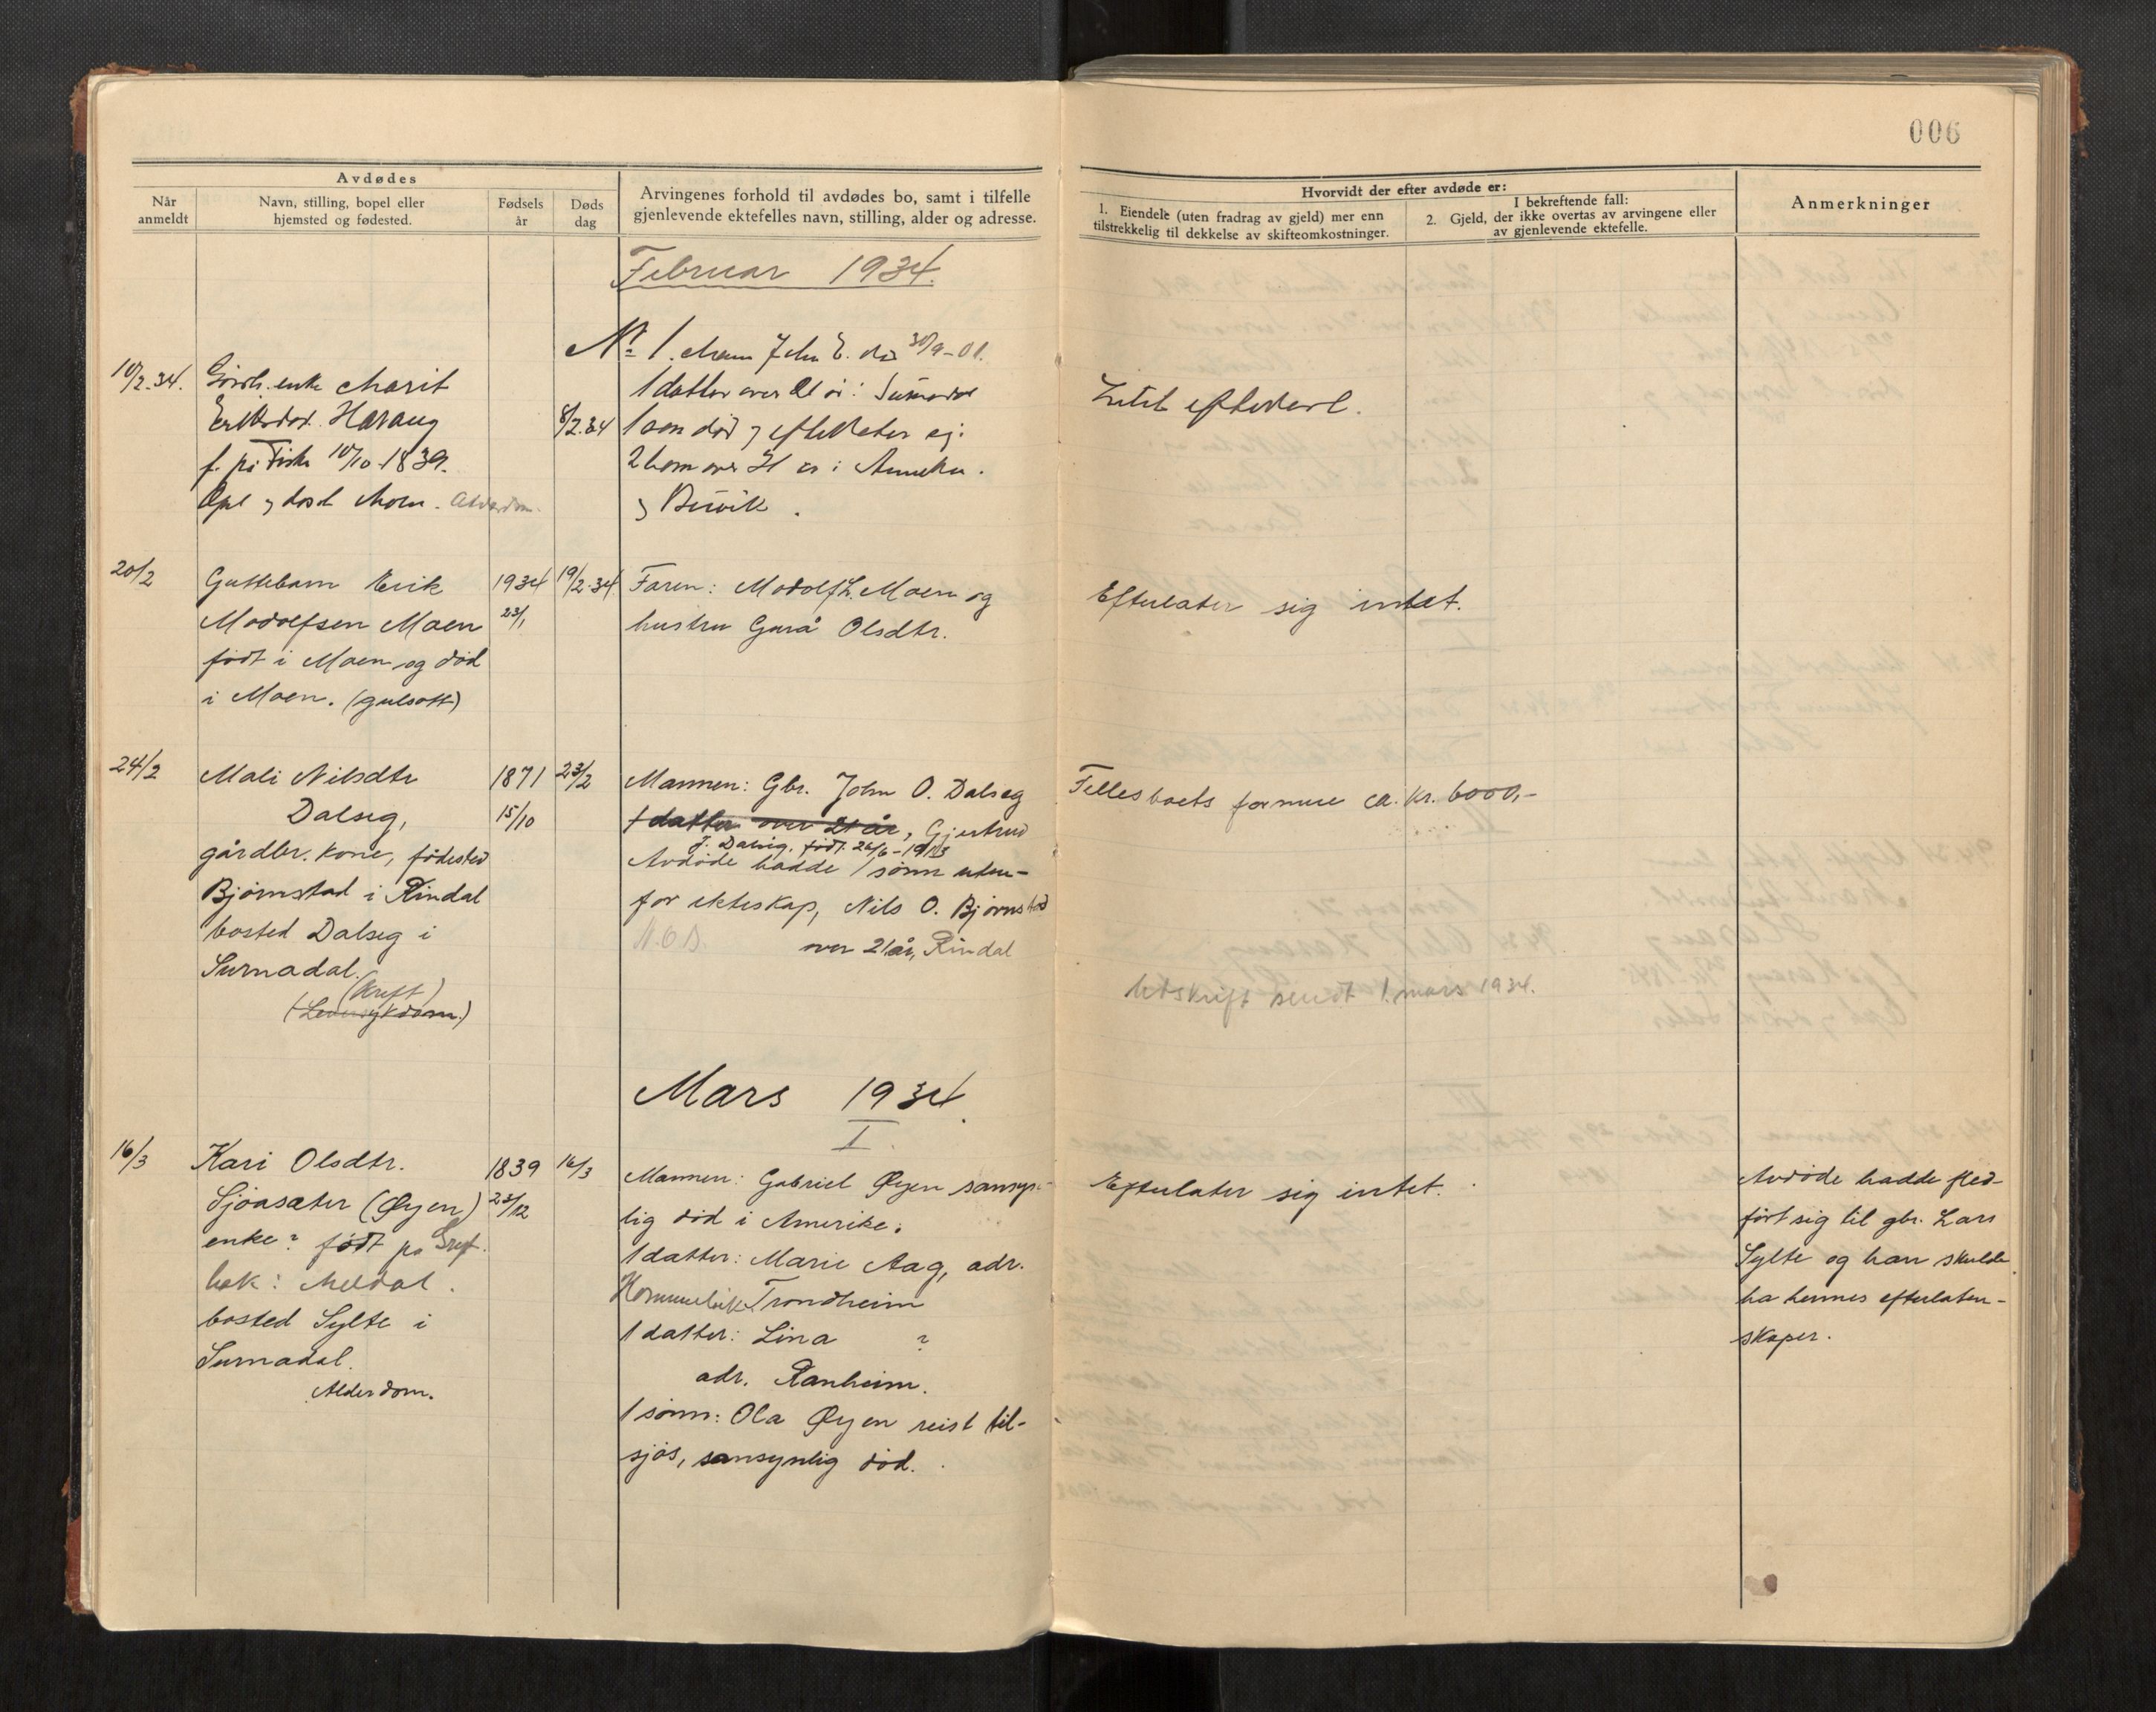 006
Avdødes
Når
anmeldt
Navn, stilling, bopel eller
hjemsted og fødested.
Fødsels
år
Døds
dag
Arvingenes forhold til avdødes bo, samt i tilfelle
gjenlevende ektefelles navn, stilling, alder og adresse.
Hvorvidt der efter avdøde er:
1. Eiendele (uten fradrag av gjeld) mer enn
tilstrekkelig til dekkelse av skifteomkostninger.
I bekreftende fall:
2. Gjeld, der ikke overtas av arvingene eller
av gjenlevende ektefelle.
Anmerkninger
Februar 1934.
No 1. John E. 30/9-01.
10/2.34. enke Marit
Harang
f. på 10/10-1839.
8/2.34
1 datter over 21 år i Surnadal
1 søn død
2 barn over 21 år i Amerika.
Intet efterlatt.
20/2
Guttebarn Erik
Modolfsen Moen
født i Moen og død
i Moen. (gulsott)
1934
23/1
19/2.34
Faren: Modolf L. Moen og
hustru Gurå Olsdtr.
Efterlater sig intet.
24/2
Mali Nilsdtr
Dalseg,
gårdbr. kone, fødested
Bjørnstad i Rindal
bosted Dalseg i
Surnadal.
(Kreft)
(Leversykdom.)
1871
15/10
23/2
Mannen: Gbr. John O. Dalseg
1 datter over 21 år, Gjertrud
J. Dalseg, født 26/6-1913
Avdøde hadde 1 sønn uten-
for ekteskap, Nils O. Bjørnstad
N.O.B. over 21 år, Rindal
Fellesboets formue ca. kr. 6000,-
Utskrift sendt 1. mars 1934.
Mars 1934.
I.
16/3
Kari Olsdtr.
Sjøasæter (Øyen)
enke? født på Gref-
bak: Meldal.
bosted Sylte i
Surnadal.
Alderdom.
1839
23/12
16/3
Mannen: Gabriel Øyen sansyn-
lig død i Amerika.
1 datter: Marie Aag, adr.
Hommelvik Trondheim
1 datter: Lina ?
adr. Ranheim.
1 sønn: Ola Øyen reist til-
sjøs, sansynlig død.
Efterlater sig intet.
Avdøde hadde fled-
ført sig til gbr. Lars
Sylte og han skulde
ha hennes efterlaten-
skaper.